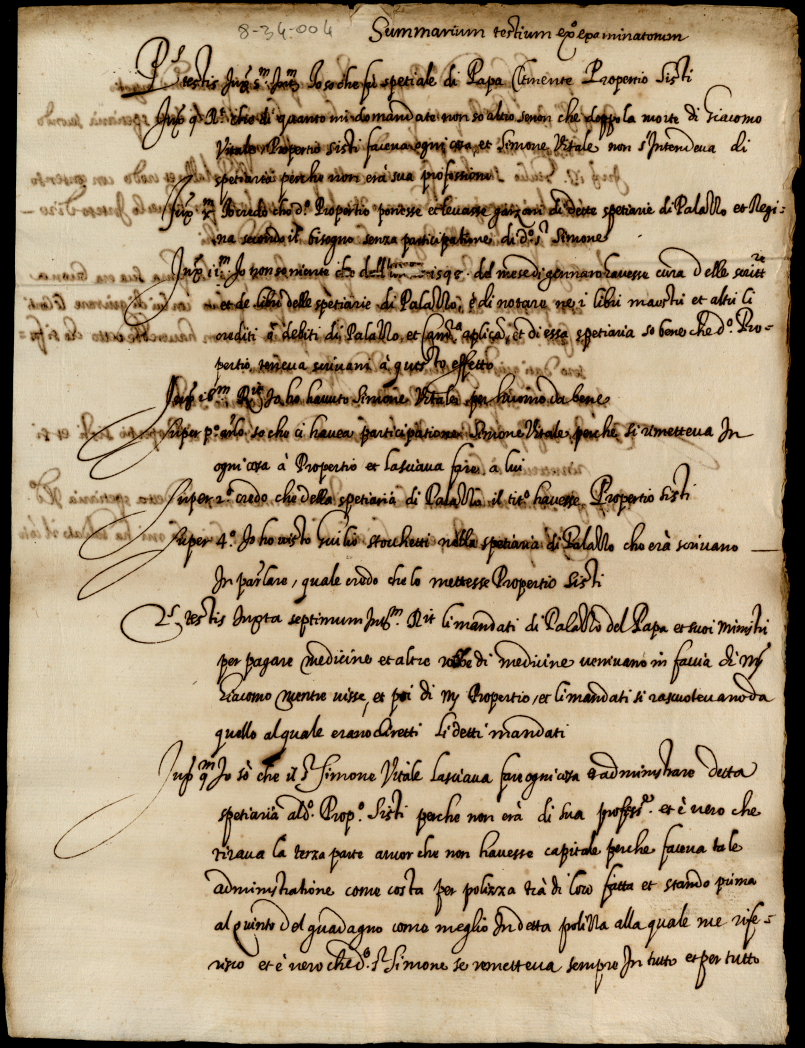 8-34-004
Summarium testium ex.º examinatorum
P.s testis Io so che fu spetiale di Papa Clemente Propertio Sisti
che di quanto mi domandate non so altro senon che doppo la morte di Giacomo
Vitale Propertio Sisti faceva ogni cosa, et Simone Vitale non s'Intendeva di
spetiaria perche non era sua professione
Io credo che d.º Propertio ponesse et levasse garzoni di dette spetiarie di Palazzo et Regi=
na secondo il bisogno senza participatione di d.º s.r Simone
Io non so niente che del mese di gennaro havesse cura delle scritt.re
et de libri delle spetiarie di Palazzo, e di notare nei libri maestri et altri li
crediti et debiti di Palazzo, et et di essa spetiaria so bene che d.º Pro=
pertio teneva scrivani à questo effetto
Io ho havuto Simone Vitale per huomo da bene
Super p.º so che ci havea participatione Simone Vitale perche si rimetteva In
ogni cosa à Propertio et lasciava fare à lui
Super 2.º credo che della spetiaria di Palazzo il tit.º havesse Propertio Sisti
Super 4.º Io ho visto stocchetti nella spetiaria di Palazzo che era scrivano
In parlare, quale credo che lo mettesse Propertio Sisti
2.s testis Iuxta septimum li mandati di Palazzo del Papa et suoi ministri
per pagare medicine et altre robbe di medicine venivano in faccia di m.
Giacomo mentre visse, et poi di m. Propertio, et li mandati si rascuotevano da
quello al quale erano diretti li detti mandati
Io sò che il s.r Simone Vitale lasciava fare ogni cosa e administrare detta
spetiaria al d.º Prop.º Sisti perche non era di sua profess.e et è vero che
tirava la terza parte ancor che non havesse capitale perche faceva tale
administratione come costa per polizza trà di loro fatta et stando prima
al quinto del guadagno come meglio In detta polizza alla quale me rife=
risco et è vero che d.º s.r Simone se remetteva sempre In tutto et per tutto